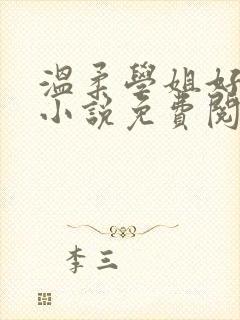 溫柔學姐好
小說免費閱
李三